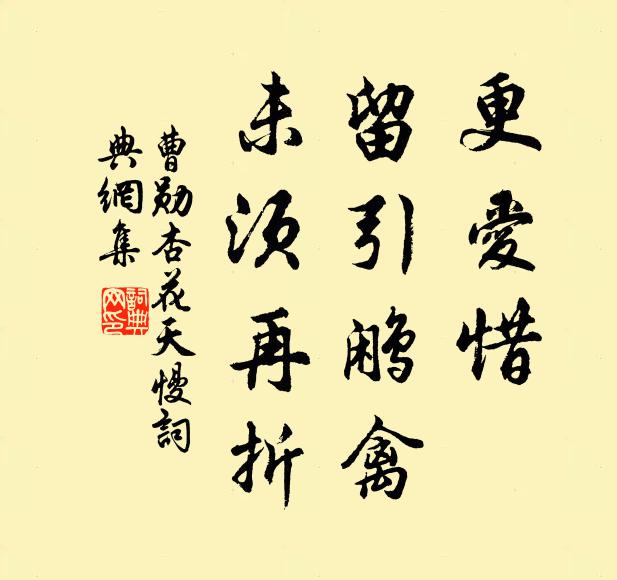 更愛惜
留引禽
未須再折
曹勛杏花天慢詞
典網集
詞典網印